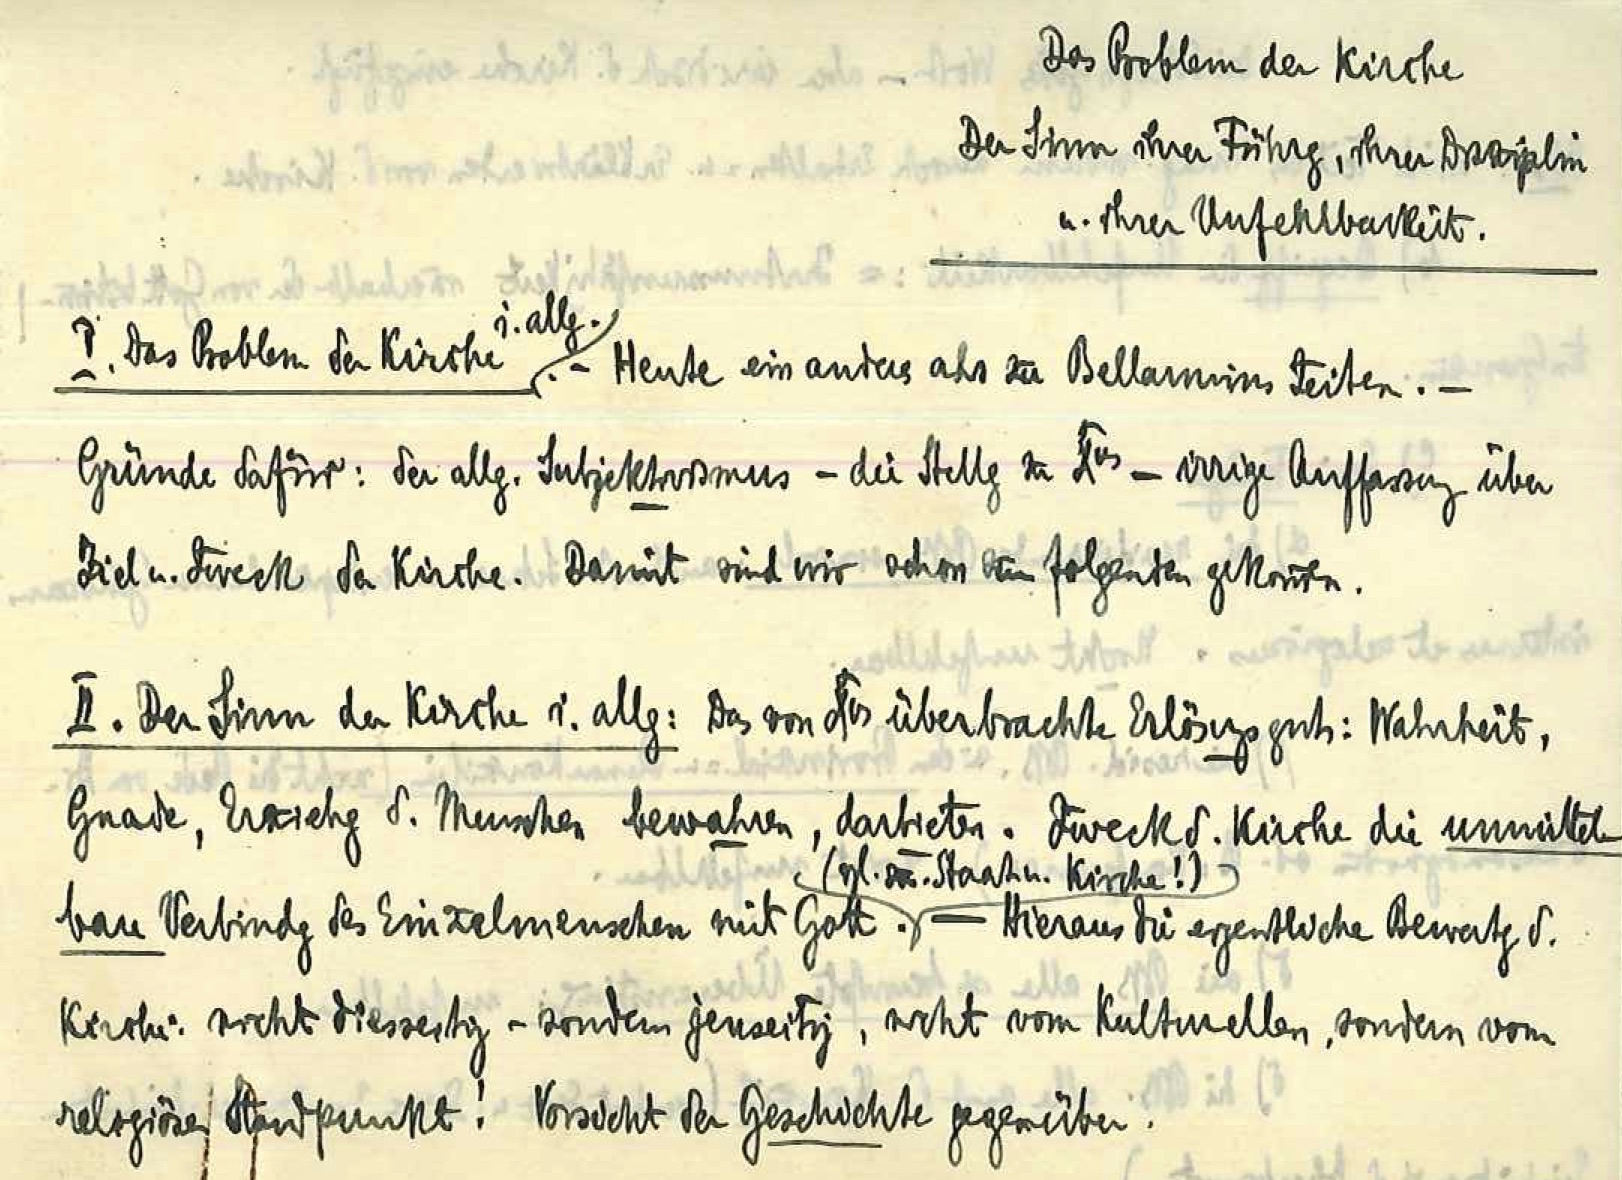 Das Problem der Kirche
Der Sinn ihrer Führg, ihrer Disziplin
u. ihrer Unfehlbarkeit.
I. Das Problem der Kirche i. allg. - Heute ein anderes als zu Bellarmins Zeiten. –
Gründe dafür: der allg. Subjektivismus – die Stellg zu Xus – irrige Auffassung über
Ziel u. Zweck der Kirche. Damit sind wir schon zum folgenden gekommen.
II. Der Sinn der Kirche i. allg: Das von Xus überbrachte Erlösungsgut: Wahrheit,
Gnade, Erziehg d. Menschen bewahren, darbieten. Zweck d. Kirche die unmittel
(vgl. zu. Staat u. Kirche!)
bare Verbindg des Einzelmenschen mit Gott. — Hieraus die eigentliche Bewertg d.
Kirche: nicht diesseitig – sondern jenseitig, nicht vom Kulturellen, sondern vom
religiösen Standpunkt! Vorsicht der Geschichte gegenüber.